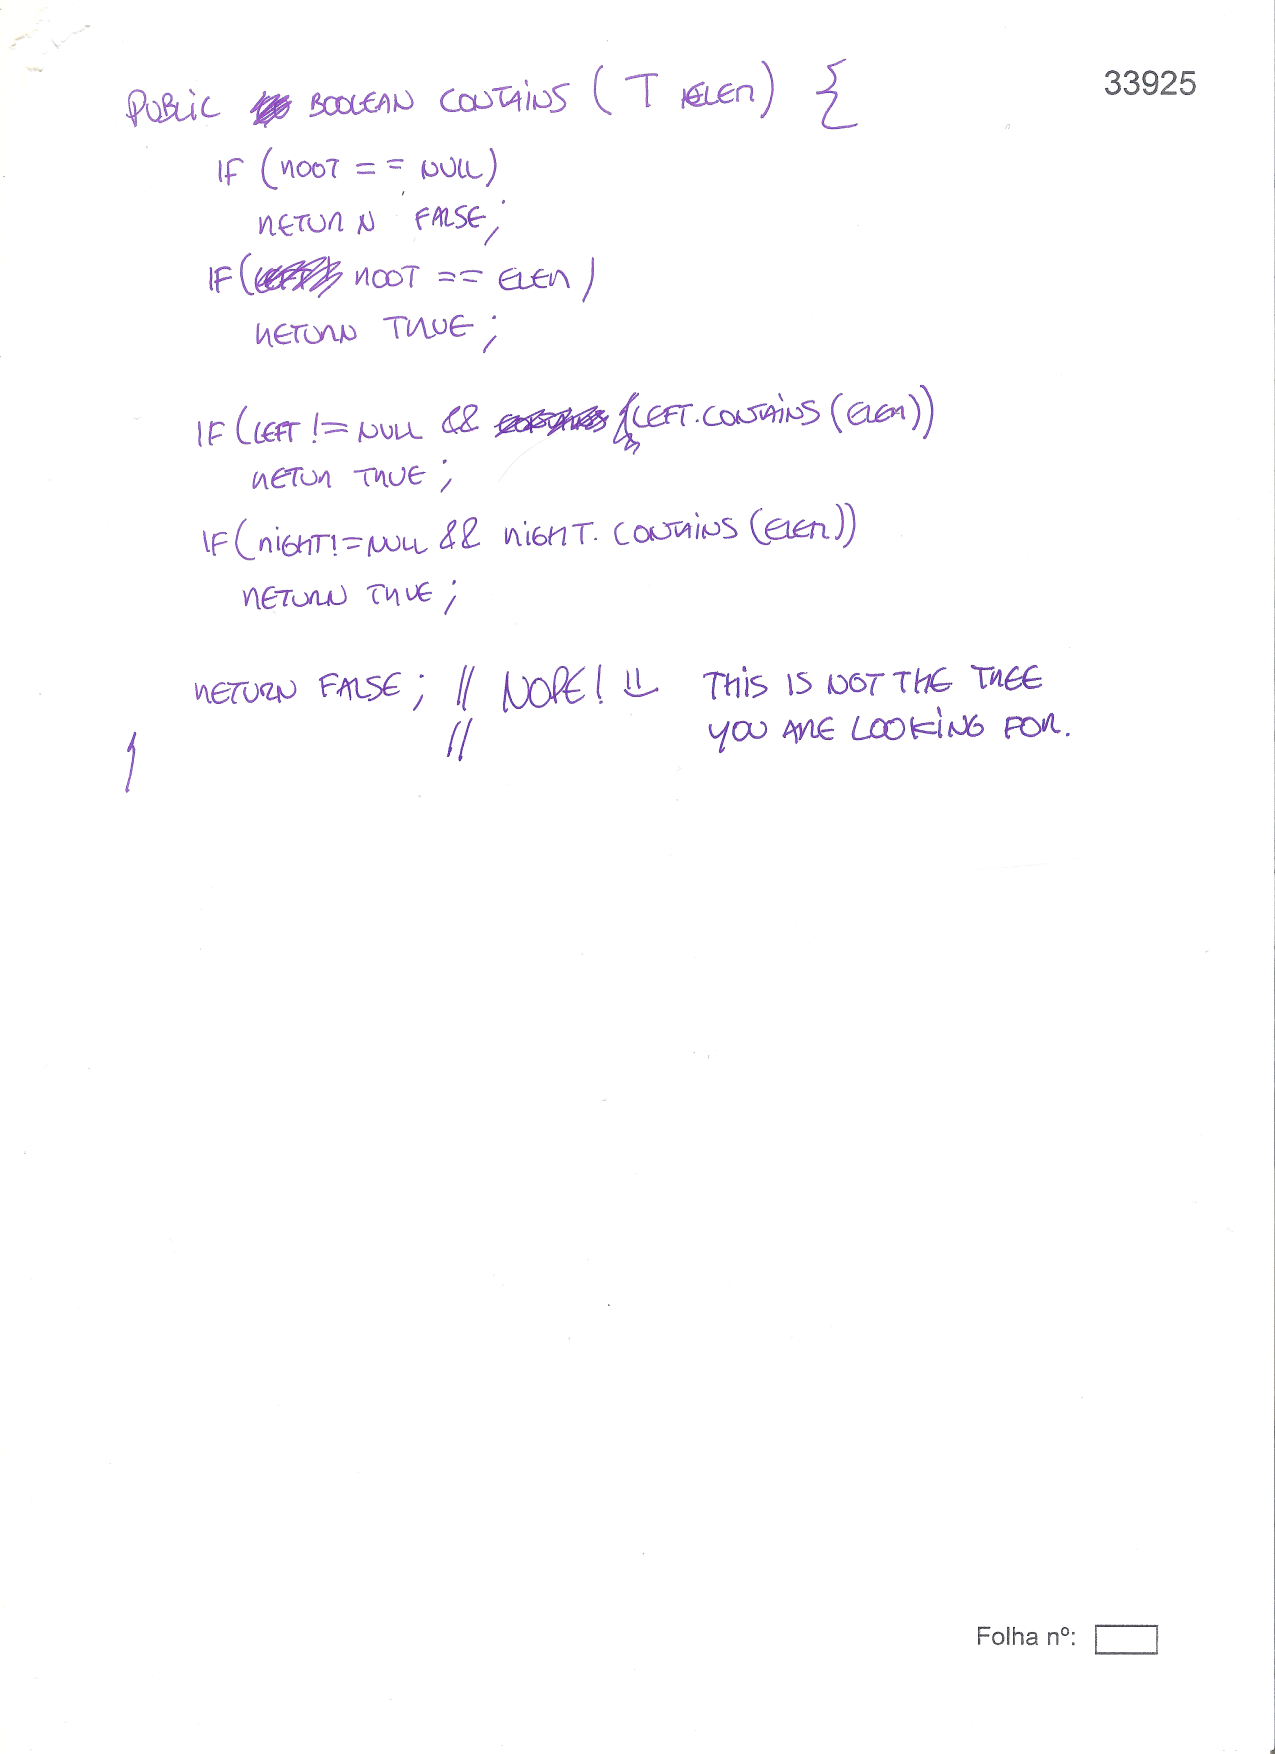 33925
PUBLIC BOOLEAN CONTAINS (T ELEM) {
IF (ROOT == NULL)
RETURN FALSE;
IF ( ROOT == ELEM)
RETURN TRUE;
IF (LEFT != NULL && (LEFT.CONTAINS (ELEM))
RETUR TRUE;
IF (RIGHT != NULL && RIGHT. CONTAINS (ELEM))
RETURN TRUE;
RETURN FALSE; // NOPE! THIS IS NOT THE TREE
// YOU ARE LOOKING FOR.
}
Folha nº: